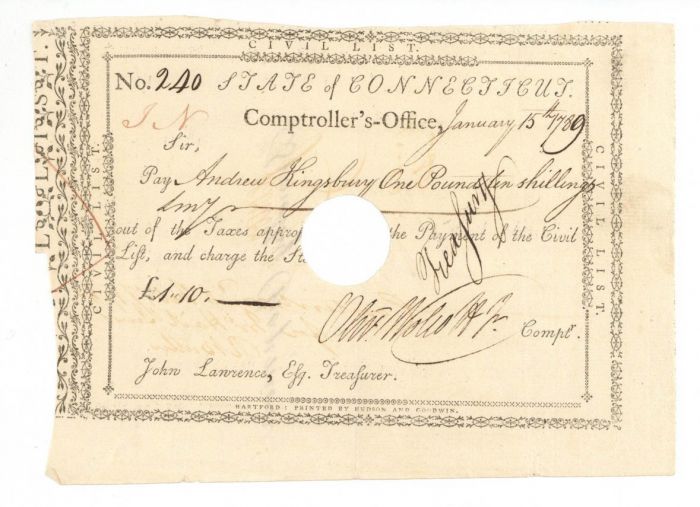 CIVIL LIST.
No. 240 STATE of CONNECTICUT.
I N
Comptroller's-Office, January 15th 1789
Sir,
Pay Andrew Kingsbury One Pound ten shillings
out of the Taxes approp the Payment of the Civil
List, and charge the
£1..10.
Treasury
Olivr. Wolcott Jr. Comptr.
John Lawrence, Esq. Treasurer.
HARTFORD: PRINTED BY HUDSON AND GOODWIN.
CIVIL LIST.
CIVIL LIST.